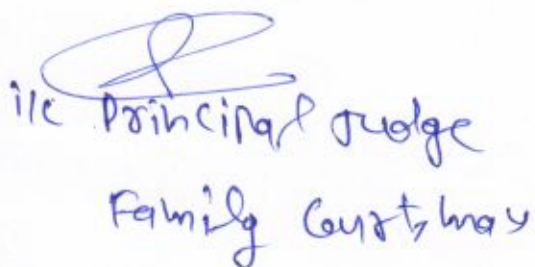 i/c Principal Judge
Family Court,